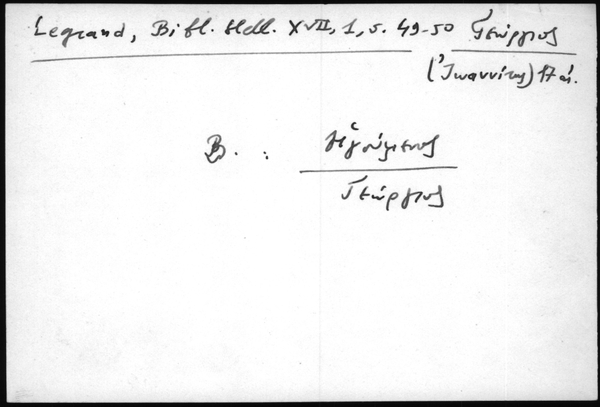 Legrand, Bibl. Hell. XVII, 1, s. 49-50 Γεώργιος
(Ἰωαννίτης) 17 αἰ.
Β. : Ἡγούμενος
Γεώργιος